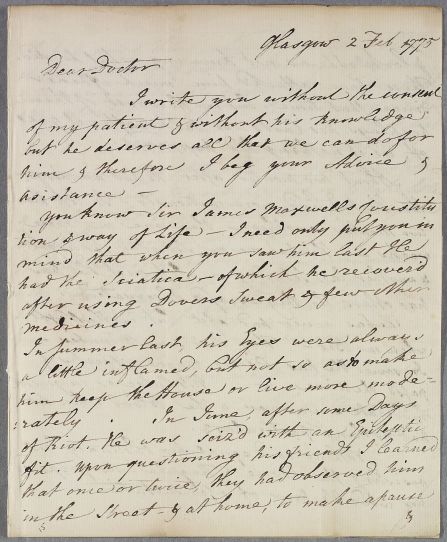 Glasgow 2 Feb 1775
Dear Doctor
I write you without the consent
of my patient & without his knowledge
but he deserves all that we can do for
him & therefore I beg your Advice &
assistance —
you know Sir James Maxwells Constitu
tion & way of Life — I need only put you in
mind that when you saw him last He
had the Sciatica — of which he recover'd
after using Dovers Sweat & few other
medicines .
In Summer last his Eyes were always
a little inflamed, but not so as to make
him keep the House or live more mode-
:rately . In June, after some Days
of Riot. He was seiz'd with an Epileptic
fit. upon questioning his friends I learned
that one or twice, they had observed him
in the Street & at home, to make a pause
&